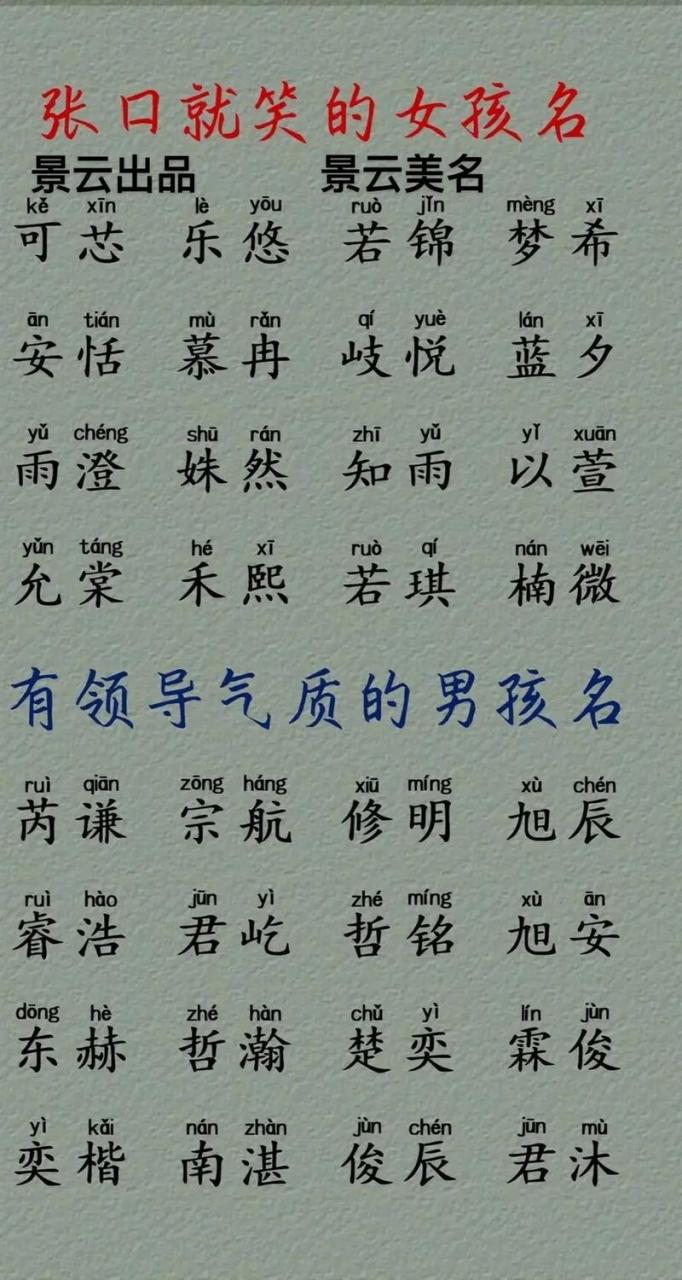 张口就笑的女孩名
景云出品 景云美名
kě xīn lè yōu ruò jǐn mèng xī
可芯 乐悠 若锦 梦希
ān tián mù rǎn qí yuè lán xī
安恬 慕冉 岐悦 蓝夕
yǔ chéng shū rán zhī yǔ yǐ xuān
雨澄 姝然 知雨 以萱
yǔn táng hé xī ruò qí nán wēi
允棠 禾熙 若琪 楠微
有领导气质的男孩名
ruì qiān zōng háng xiū míng xù chén
芮谦 宗航 修明 旭辰
ruì hào jūn yì zhé míng xù ān
睿浩 君屹 哲铭 旭安
dōng hè zhé hàn chǔ yì lín jùn
东赫 哲瀚 楚奕 霖俊
yì kǎi nán zhàn jùn chén jūn mù
奕楷 南湛 俊辰 君沐